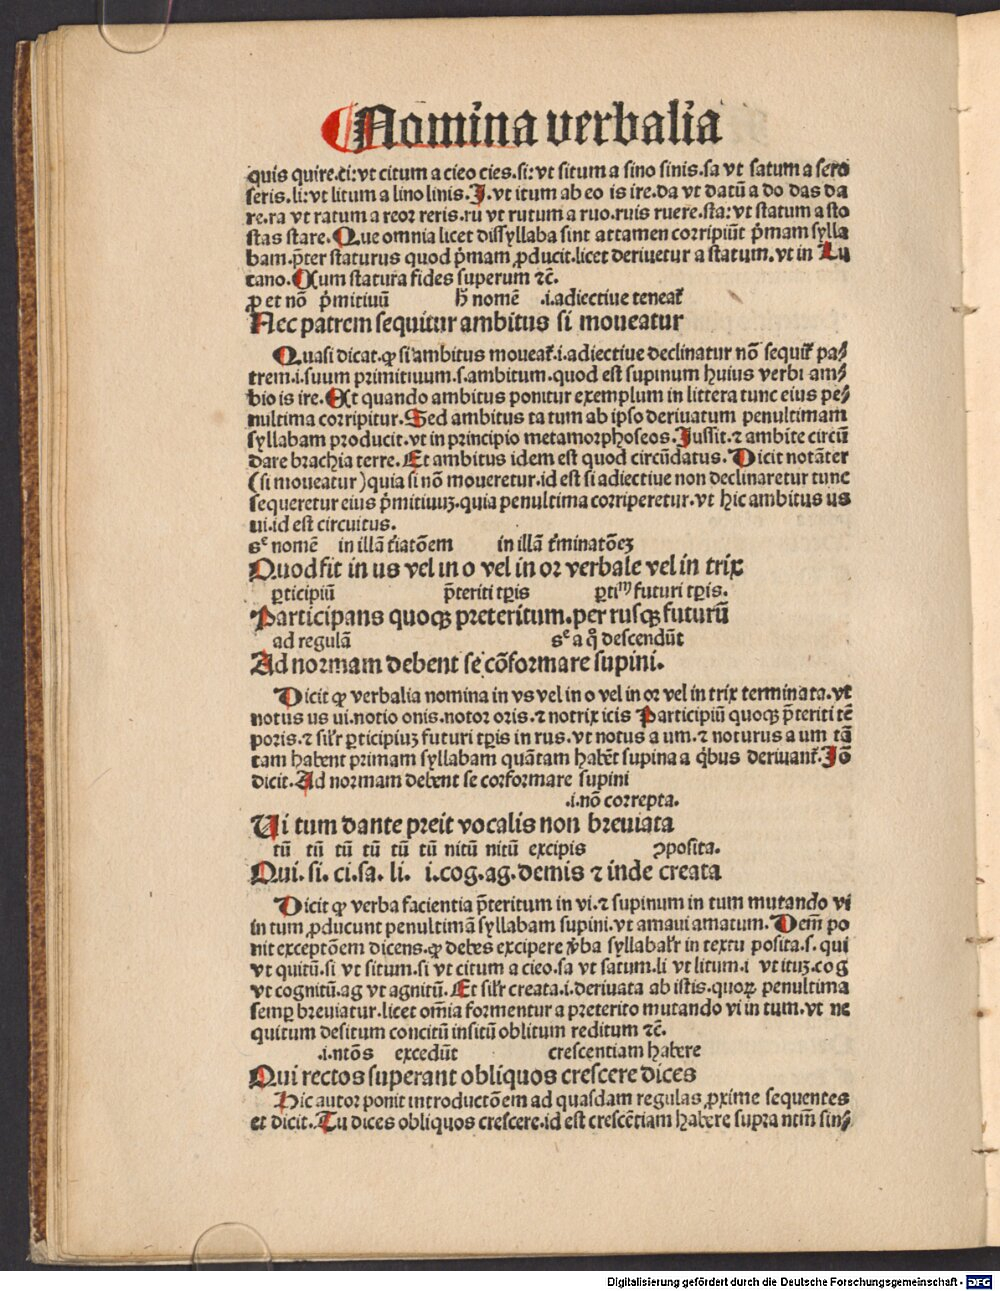 Nomina verbalia
quis quire.ti:vt citum a cieo cies.si:vt situm a sino sinis.sa vt satum a sero
seris.li:vt litum a lino linis.I.vt itum ab eo is ire.da vt datū a do das da
re.ra vt ratum a reor reris.ru vt rutum a ruo.ruis ruere.sta:vt statum a sto
stas stare.Que omnia licet dissyllaba sint attamen corripiūt p̄mam sylla
bam.p̄ter staturus quod p̄mam ꝓducit.licet deriuetur a statum.vt in Lu
cano.Cum statura fides superum ⁊c̄.
ꝓ et nō p̄mitiuū h̄ nomē .i.adiectiue teneat᷑
Nec patrem sequitur ambitus si moueatur
Quasi dicat.ꝙ si ambitus moueat᷑.i.adiectiue declinatur nō sequit᷑ pa⸗
trem.i.suum primitiuum.s.ambitum.quod est supinum huius verbi am⸗
bio is ire.Et quando ambitus ponitur exemplum in littera tunc eius pe⸗
nultima corripitur.Sed ambitus ta tum ab ipso deriuatum penultimam
syllabam producit.vt in principio metamorphoseos.Iussit.⁊ ambite circū
dare brachia terre.Et ambitus idem est quod circūdatus.Dicit notāter
(si moueatur)quia si nō moueretur.id est si adiectiue non declinaretur tunc
sequeretur eius p̄mitiuuꝫ.quia penultima corriperetur.vt hic ambitus us
ui.id est circuitus.
sᶜ nomē in illā t̄iatōem in illā t̄minatōeꝫ
Quod fit in us vel in o vel in or verbale vel in trix
ꝑticipiū p̄teriti tꝑis ꝑtiᵐ futuri tꝑis.
Participans quoqꝫ preteritum.per rusqꝫ futurū
ad regulā sᶜ a q̄ descendūt
Ad normam debent se cōformare supini.
Dicit ꝙ verbalia nomina in vs vel in o vel in or vel in trix terminata.vt
notus us ui.notio onis.notor oris.⁊ notrix icis Participiū quoqꝫ p̄teriti tē
poris.⁊ silr̄ ꝑticipiuꝫ futuri tꝑis in rus.vt notus a um.⁊ noturus a um tā
tam habent primam syllabam quātam habēt supina a q̄bus deriuant᷑.Iō
dicit.Ad normam debent se corformare supini
.i.nō correpta.
Vi tum dante preit vocalis non breuiata
tū tū tū tū tū tū nitū nitū excipis ꝯposita.
Qui.si.ci.sa.li. i.cog.ag.demis ⁊ inde creata
Dicit ꝙ verba facientia p̄teritum in vi.⁊ supinum in tum mutando vi
in tum ꝓducunt penultimā syllabam supini.vt amaui amatum.Dem̄ po
nit exceptōem dicens.ꝙ debes excipere v̄ba syllabalr̄ in textu posita.s. qui
vt quitū.si vt situm.si vt citum a cieo.sa vt satum.li vt litum.i vt ituꝫ.cog
vt cognitū.ag vt agnitū.Et silr̄ creata.i.deriuata ab istis.quoꝝ penultima
semꝑ breuiatur.licet om̄ia formentur a preterito mutando vi in tum.vt ne
quitum desitum concitū insitū oblitum reditum ⁊c̄.
.i.ntōs excedūt crescentiam habere
Qui rectos superant obliquos crescere dices
Hic autor ponit introductōem ad quasdam regulas ꝓxime sequentes
et dicit.Tu dices obliquos crescere.id est crescētiam habere supra ntm̄ sin⸗
Digitalisierung gefördert durch die Deutsche Forschungsgemeinschaft - DFG